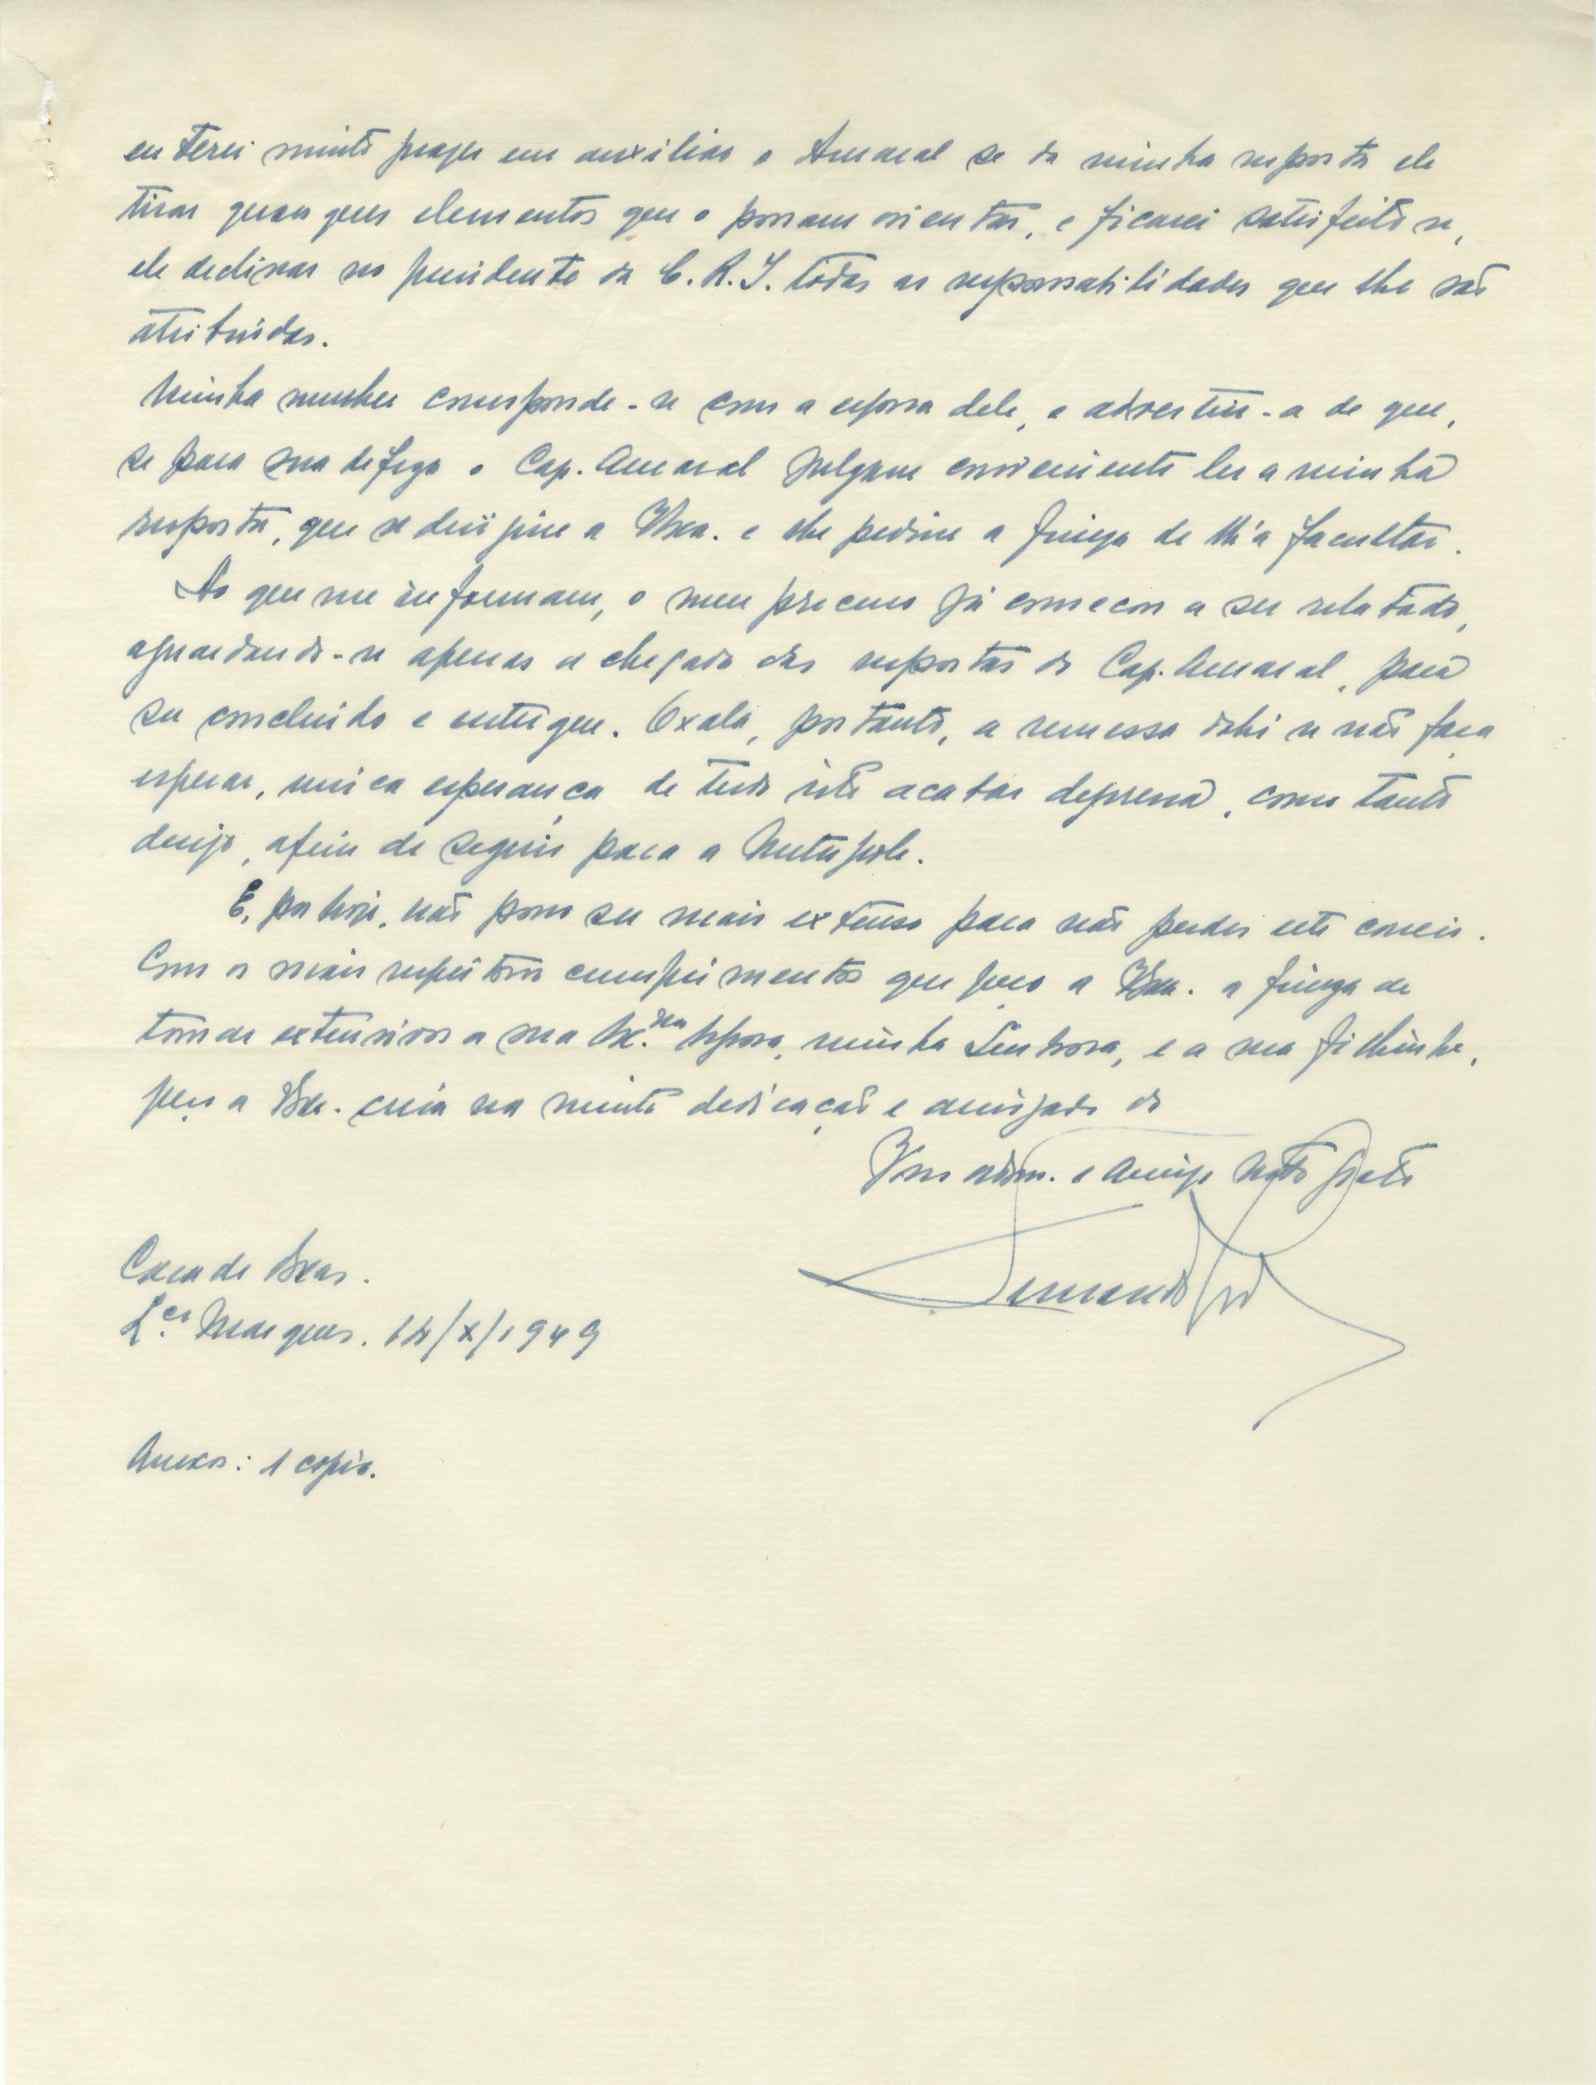 eu terei muito prazer em auxiliar o Amaral se da minha resposta ele
tirar quaisquer elementos que o possam orientar, e ficarei satisfeito se,
ele declinar no presidente da C. R. I. todas as responsabilidades que lhe são
atribuidas.
Minha mulher corresponde-se com a esposa dele, e advertiu-a de que,
se para sua defeza o Cap. Amaral julgasse conveniente ler a minha
resposta, que se dirigisse a VExa. e lhe pedisse a fineza de lh'a facultar.
Ao que me informam, o meu processo já começou a ser relatado,
aguardando-se apenas a chegada das respostas do Cap. Amaral, para
ser concluido e entregue. Oxalá, portanto, a remessa dahi se não faça
esperar, unica esperança de tudo isto acabar depressa, como tanto
desejo, afim de seguir para a Metropole.
E, por hoje, não posso ser mais extenso para não perder este correio.
Com os mais respeitosos cumprimentos que peço a VExa. a fineza de
tornar extensivos a sua Ex.ma Esposa, minha Senhora, e a sua filhinha,
peço a VExa. creia na muita dedicação e amizade do
admor. e Amigo Mto Grato
Fernando
Casa de Vexas.
L.ço Marques. /X/1949
Anexos: 1 copia.